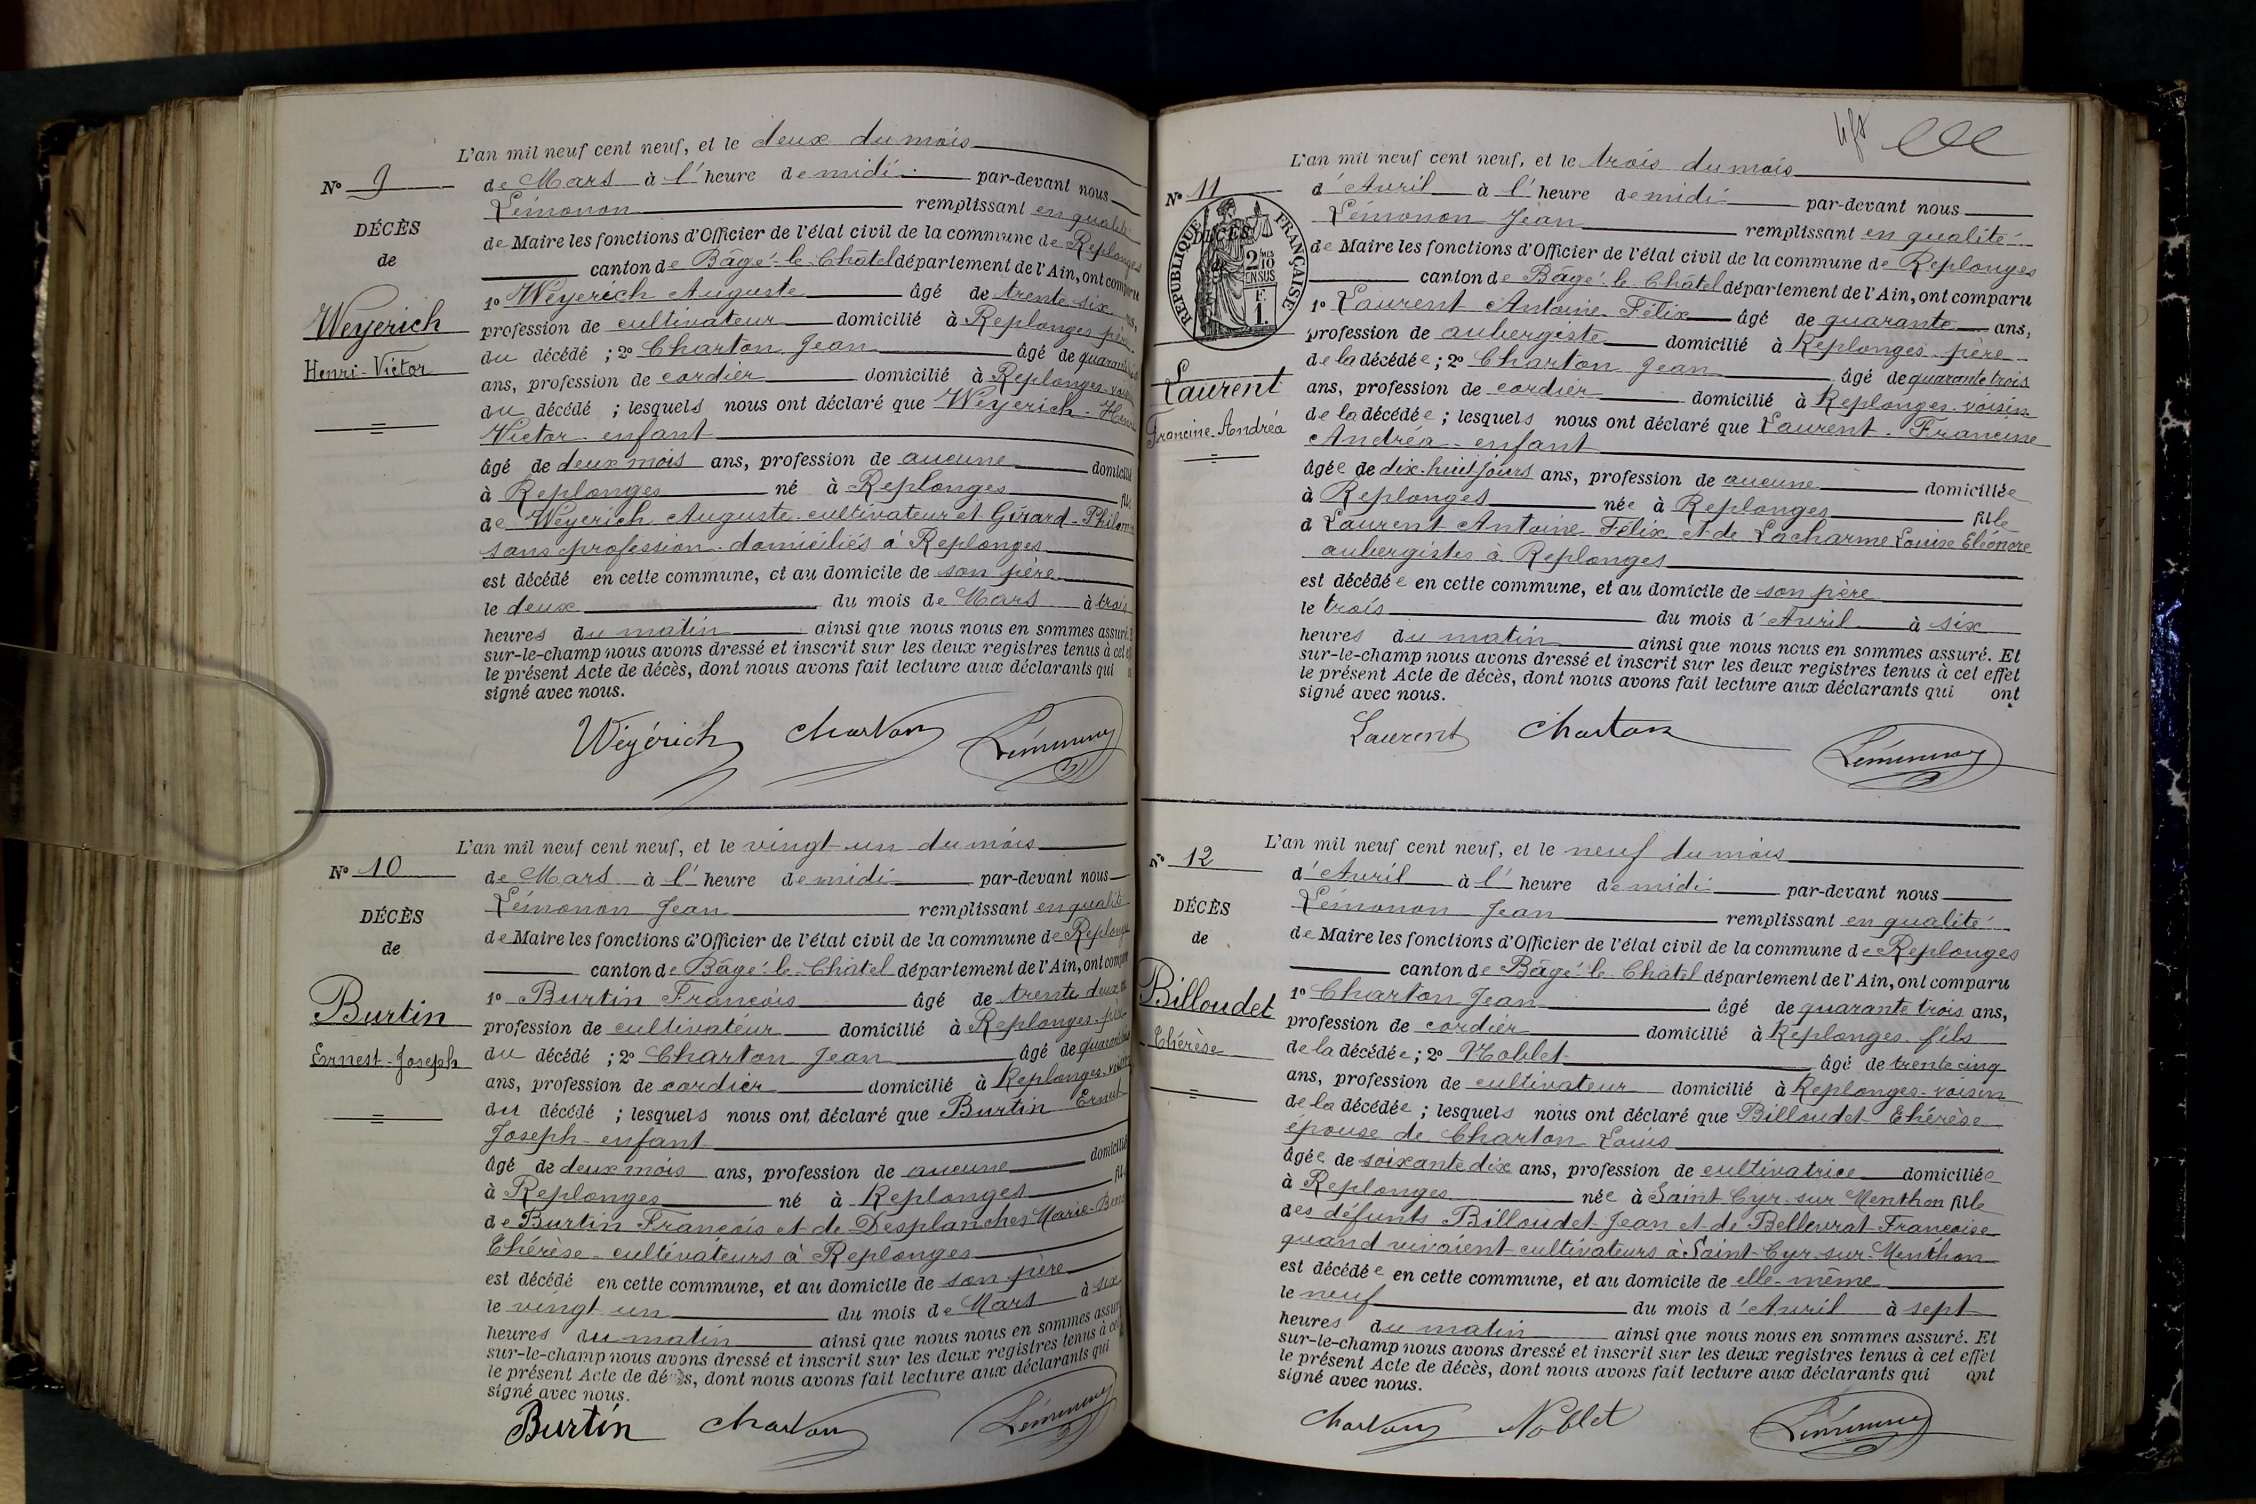 L'an mil neuf cent neuf, et le deux du mois
N° 9
de Mars à l'heure de midi par-devant nous
Lémonon remplissant en qualité
DÉCÈS
de Maire les fonctions d'Officier de l'état civil de la commune de Replonges
de
canton de Bâgé-le-Châtel département de l'Ain, ont comparu
1° Weyerich Auguste âgé de trente six ans,
Weyerich
profession de cultivateur domicilié à Replonges père
du décédé ; 2° Charton Jean âgé de
Henri-Victor
ans, profession de cordier domicilié à Replonges voisin
du décédé ; lesquels nous ont déclaré que Weyerich-Henri
Victor-enfant
âgé de deux mois ans, profession de aucune domicilié
à Replonges né à Replonges fils
de Weyerich Auguste cultivateur et Girard-Philom
sans profession domiciliés à Replonges
est décédé en cette commune, et au domicile de son père
le deux du mois de Mars à trois
heures du matin ainsi que nous nous en sommes assuré. E
sur-le-champ nous avons dressé et inscrit sur les deux registres tenus à cet e
le présent Acte de décès, dont nous avons fait lecture aux déclarants qui
signé avec nous.
Wéyérich Charton Lémonon
L'an mil neuf cent neuf, et le vingt-un du mois
N° 10
de Mars à l'heure de midi par-devant nous
Lémonon Jean remplissant en qualité
DÉCÈS
de Maire les fonctions d'Officier de l'état civil de la commune de Replonges
de
canton de Bâgé-le-Châtel département de l'Ain, ont comparu
1° Burtin François âgé de trente deux
Burtin
profession de cultivateur domicilié à Replonges-père
du décédé ; 2° Charton Jean âgé de
Ernest-Joseph
ans, profession de cordier domicilié à Replonges-voisin
du décédé ; lesquels nous ont déclaré que Burtin Ernest
Joseph-enfant
âgé de deux mois ans, profession de aucune domicilié
à Replonges né à Replonges fils
de Burtin François et de Desplanches Marie-Ben
Thérèse-cultivateurs à Replonges
est décédé en cette commune, et au domicile de son père
le vingt-un du mois de Mars à six
heures du matin ainsi que nous nous en sommes assur
sur-le-champ nous avons dressé et inscrit sur les deux registres tenus à ce
le présent Acte de décès, dont nous avons fait lecture aux déclarants qui
signé avec nous.
Burtin Charton Lémonon
L'an mil neuf cent neuf, et le trois du mois
N° 11
d'Avril à l'heure de midi par-devant nous
Lémonon Jean remplissant en qualité
DÉCÈS
RÉPUBLIQUE FRANÇAISE
2 10 MES
EN SUS
F.
1.
de Maire les fonctions d'Officier de l'état civil de la commune de Replonges
canton de Bâgé-le-Châtel département de l'Ain, ont comparu
1° Laurent Antoine-Félix âgé de quarante ans,
profession de aubergiste domicilié à Replonges-père
Laurent
de la décédée ; 2° Charton Jean âgé de quarante trois
ans, profession de cordier domicilié à Replonges-voisin
Francine-Andréa
de la décédée ; lesquels nous ont déclaré que Laurent-Francine
Andréa-enfant
âgée de dix-huit jours ans, profession de aucune domiciliée
à Replonges née à Replonges fille
d Laurent Antoine Félix et de Lacharme Louise Eléonore
aubergistes à Replonges
est décédée en cette commune, et au domicile de son père
le trois du mois d'Avril à six
heures du matin ainsi que nous nous en sommes assuré. Et
sur-le-champ nous avons dressé et inscrit sur les deux registres tenus à cet effet
le présent Acte de décès, dont nous avons fait lecture aux déclarants qui ont
signé avec nous.
Laurent Charton Lémonon
L'an mil neuf cent neuf, et le neuf du mois
N° 12
d'Avril à l'heure de midi par-devant nous
Lémonon Jean remplissant en qualité
DÉCÈS
de Maire les fonctions d'Officier de l'état civil de la commune de Replonges
de
canton de Bâgé-le-Châtel département de l'Ain, ont comparu
Billoudet
1° Charton Jean âgé de quarante trois ans,
profession de cordier domicilié à Replonges-fils
Thérèse
de la décédée ; 2° Noblet âgé de trente cinq
ans, profession de cultivateur domicilié à Replonges-voisin
de la décédée ; lesquels nous ont déclaré que Billoudet-Thérèse
épouse de Charton Louis
âgée de soixante dix ans, profession de cultivatrice domiciliée
à Replonges née à Saint-Cyr-sur-Menthon fille
des défunts Billoudet-Jean et de Bellevrat-Françoise
quand vivaient cultivateurs à Saint-Cyr-sur-Menthon
est décédée en cette commune, et au domicile de elle-même
le neuf du mois d'Avril à sept
heures du matin ainsi que nous nous en sommes assuré. Et
sur-le-champ nous avons dressé et inscrit sur les deux registres tenus à cet effet
le présent Acte de décès, dont nous avons fait lecture aux déclarants qui ont
signé avec nous.
Charton Noblet Lémonon